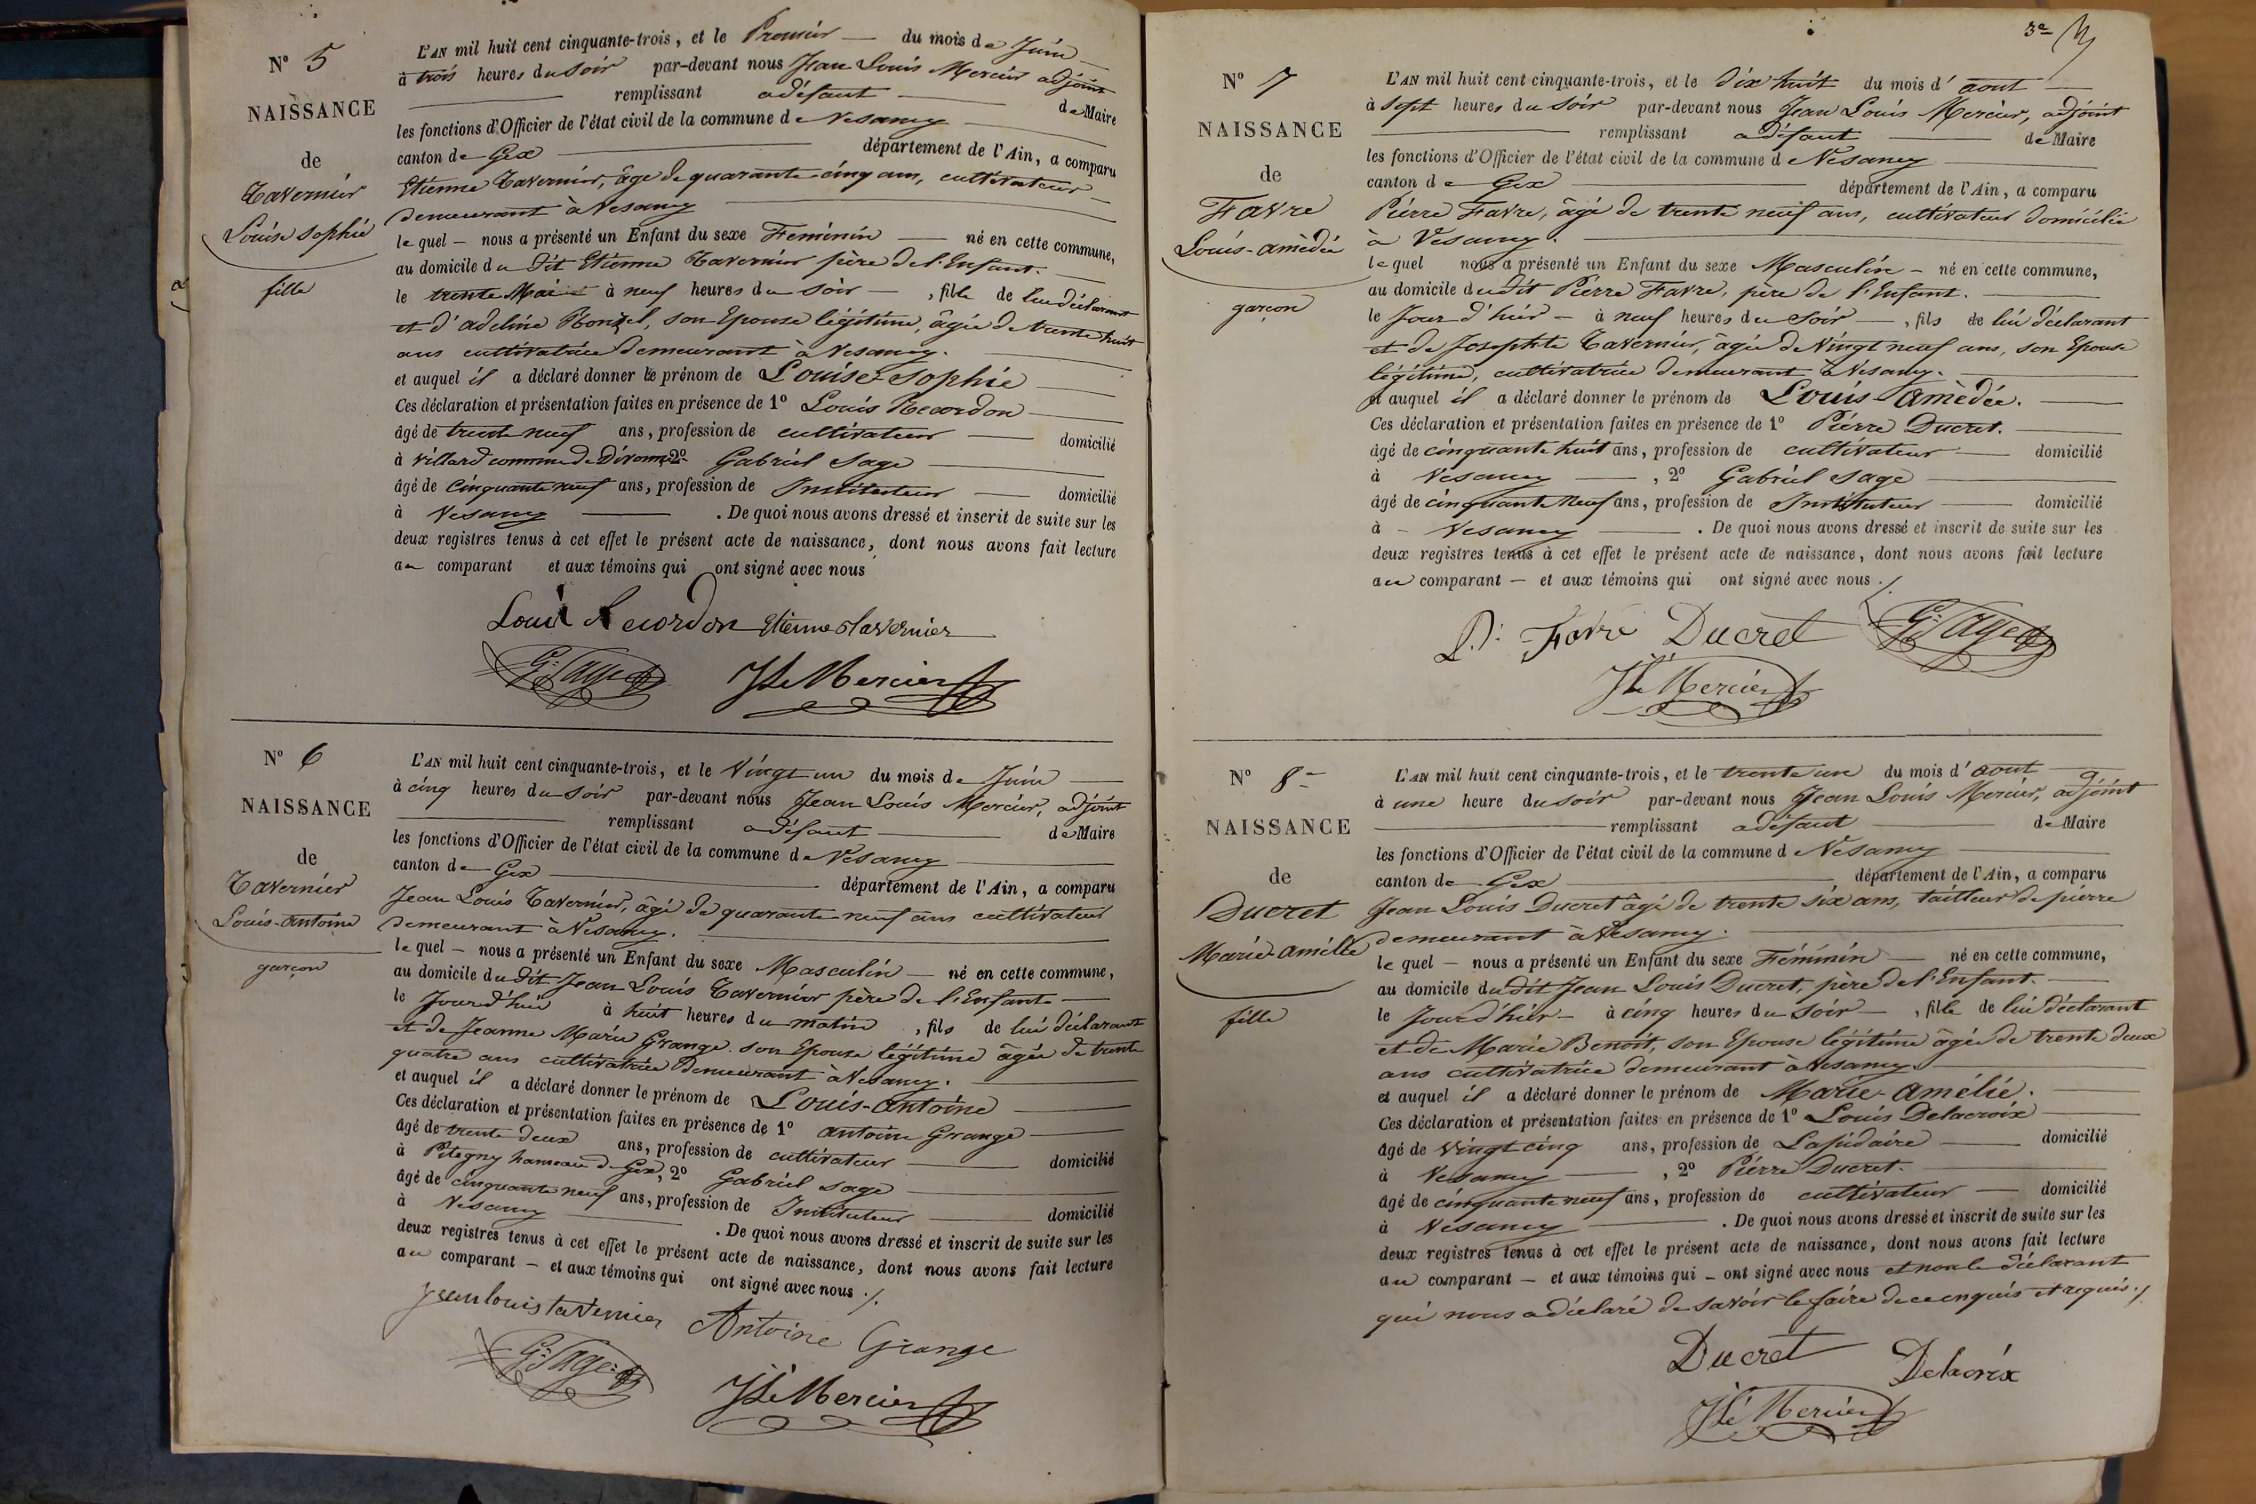 N° 5
NAISSANCE
de
Tavernier
Louise Sophie
fille
L'AN mil huit cent cinquante-trois, et le Premier du mois de Juin
à trois heures du soir par-devant nous Jean Louis Mercier adjoint
remplissant a défaut de Maire
les fonctions d'Officier de l'état civil de la commune de Vesancy
canton de Gex département de l'Ain, a comparu
Etienne Tavernier, âgé de quarante cinq ans, cultivateur
demeurant à Vesancy
lequel – nous a présenté un Enfant du sexe Féminin né en cette commune,
au domicile du dit Etienne Tavernier père de l'Enfant.
le trente Mai à neuf heures du soir, fille de lui déclarant
et d'adeline son Epouse légitime, âgée de trente huit
ans cultivatrice demeurant à Vesancy.
et auquel il a déclaré donner le prénom de Louise-Sophie
Ces déclaration et présentation faites en présence de 1° Louis Recordon
âgé de trente neuf ans, profession de cultivateur domicilié
à villard commune de Divonne, 2° Gabriel Sage
âgé de Cinquante neuf ans, profession de Instituteur domicilié
à Vesancy . De quoi nous avons dressé et inscrit de suite sur les
deux registres tenus à cet effet le présent acte de naissance, dont nous avons fait lecture
au comparant et aux témoins qui ont signé avec nous
Louis Recordon Etienne tavernier
G: Sage JLs Mercier
N° 6
NAISSANCE
de
Tavernier
Louis-antoine
garçon
L'AN mil huit cent cinquante-trois, et le vingt un du mois de Juin
à cinq heures du soir par-devant nous Jean Louis Mercier, adjoint
remplissant a défaut de Maire
les fonctions d'Officier de l'état civil de la commune de Vesancy
canton de Gex département de l'Ain, a comparu
Jean Louis Tavernier, âgé de quarante neuf ans cultivateur
demeurant à Vesancy.
lequel – nous a présenté un Enfant du sexe Masculin – né en cette commune,
au domicile du dit Jean Louis Tavernier père de l'Enfant
le Jourd'hui à huit heures du matin, fils de lui déclarant
et de Jeanne Marie Grange son Epouse légitime âgée de trente
quatre ans cultivatrice demeurant à Vesancy.
et auquel il a déclaré donner le prénom de Louis-antoine
Ces déclaration et présentation faites en présence de 1° antoine Grange
âgé de trente deux ans, profession de cultivateur domicilié
à Pitegny hameau de Gex, 2° Gabriel Sage
âgé de cinquante neuf ans, profession de Instituteur domicilié
à Vesancy . De quoi nous avons dressé et inscrit de suite sur les
deux registres tenus à cet effet le présent acte de naissance, dont nous avons fait lecture
au comparant – et aux témoins qui ont signé avec nous ./.
jean louis tavernier Antoine Grange
G: Sage JLs Mercier
3e
N° 7
NAISSANCE
de
Favre
Louis-amèdée
garçon
L'AN mil huit cent cinquante-trois, et le dix huit du mois d'aout
à sept heures du soir par-devant nous Jean Louis Mercier, adjoint
remplissant a défaut de Maire
les fonctions d'Officier de l'état civil de la commune d Vesancy
canton de Gex département de l'Ain, a comparu
Pierre Favre, âgé de trente neuf ans, cultivateur domicilié
à Vesancy.
lequel nous a présenté un Enfant du sexe Masculin – né en cette commune,
au domicile du dit Pierre Favre, père de l'Enfant.
le Jour d'hier – à neuf heures du soir –, fils de lui déclarant
et de Josephte Tavernier, âgée de Vingt neuf ans, son Epouse
légitime, cultivatrice demeurant à Vesancy.
et auquel il a déclaré donner le prénom de Louis-Amèdée.
Ces déclaration et présentation faites en présence de 1° Pierre Ducret.
âgé de cinquante huit ans, profession de cultivateur domicilié
à Vesancy , 2° Gabriel Sage
âgé de cinquante Neuf ans, profession de Instituteur domicilié
à – Vesancy . De quoi nous avons dressé et inscrit de suite sur les
deux registres tenus à cet effet le présent acte de naissance, dont nous avons fait lecture
au comparant – et aux témoins qui ont signé avec nous ./.
P: Favre Ducret G: Sage
JLs Mercier
N° 8
NAISSANCE
de
Ducret
Marie-amélie
fille
L'AN mil huit cent cinquante-trois, et le trente un du mois d'aout
à une heure du soir par-devant nous Jean Louis Mercier, adjoint
remplissant a défaut de Maire
les fonctions d'Officier de l'état civil de la commune d Vesancy
canton de Gex département de l'Ain, a comparu
Jean Louis Ducret âgé de trente six ans, tailleur de pierre
demeurant à Vesancy.
lequel – nous a présenté un Enfant du sexe Féminin né en cette commune,
au domicile du dit Jean Louis Ducret, père de l'Enfant.
le Jourd'hier – à cinq heures du soir –, fille de lui déclarant
et de Marie Benoit, son Epouse légitime âgée de trente deux
ans cultivatrice demeurant à Vesancy
et auquel il a déclaré donner le prénom de Marie-Amélie.
Ces déclaration et présentation faites en présence de 1° Louis Delacroix
âgé de vingt cinq ans, profession de Lapidaire domicilié
à Vesancy , 2° Pierre Ducret.
âgé de cinquante neuf ans, profession de cultivateur domicilié
à Vesancy . De quoi nous avons dressé et inscrit de suite sur les
deux registres tenus à cet effet le présent acte de naissance, dont nous avons fait lecture
au comparant – et aux témoins qui – ont signé avec nous et non le déclarant
qui nous a déclaré de savoir le faire de ce enquis et requis ./.
Ducret Delacroix
JLs Mercier